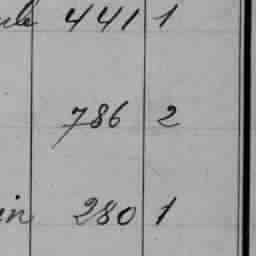 441 1
786 2
in 280 1